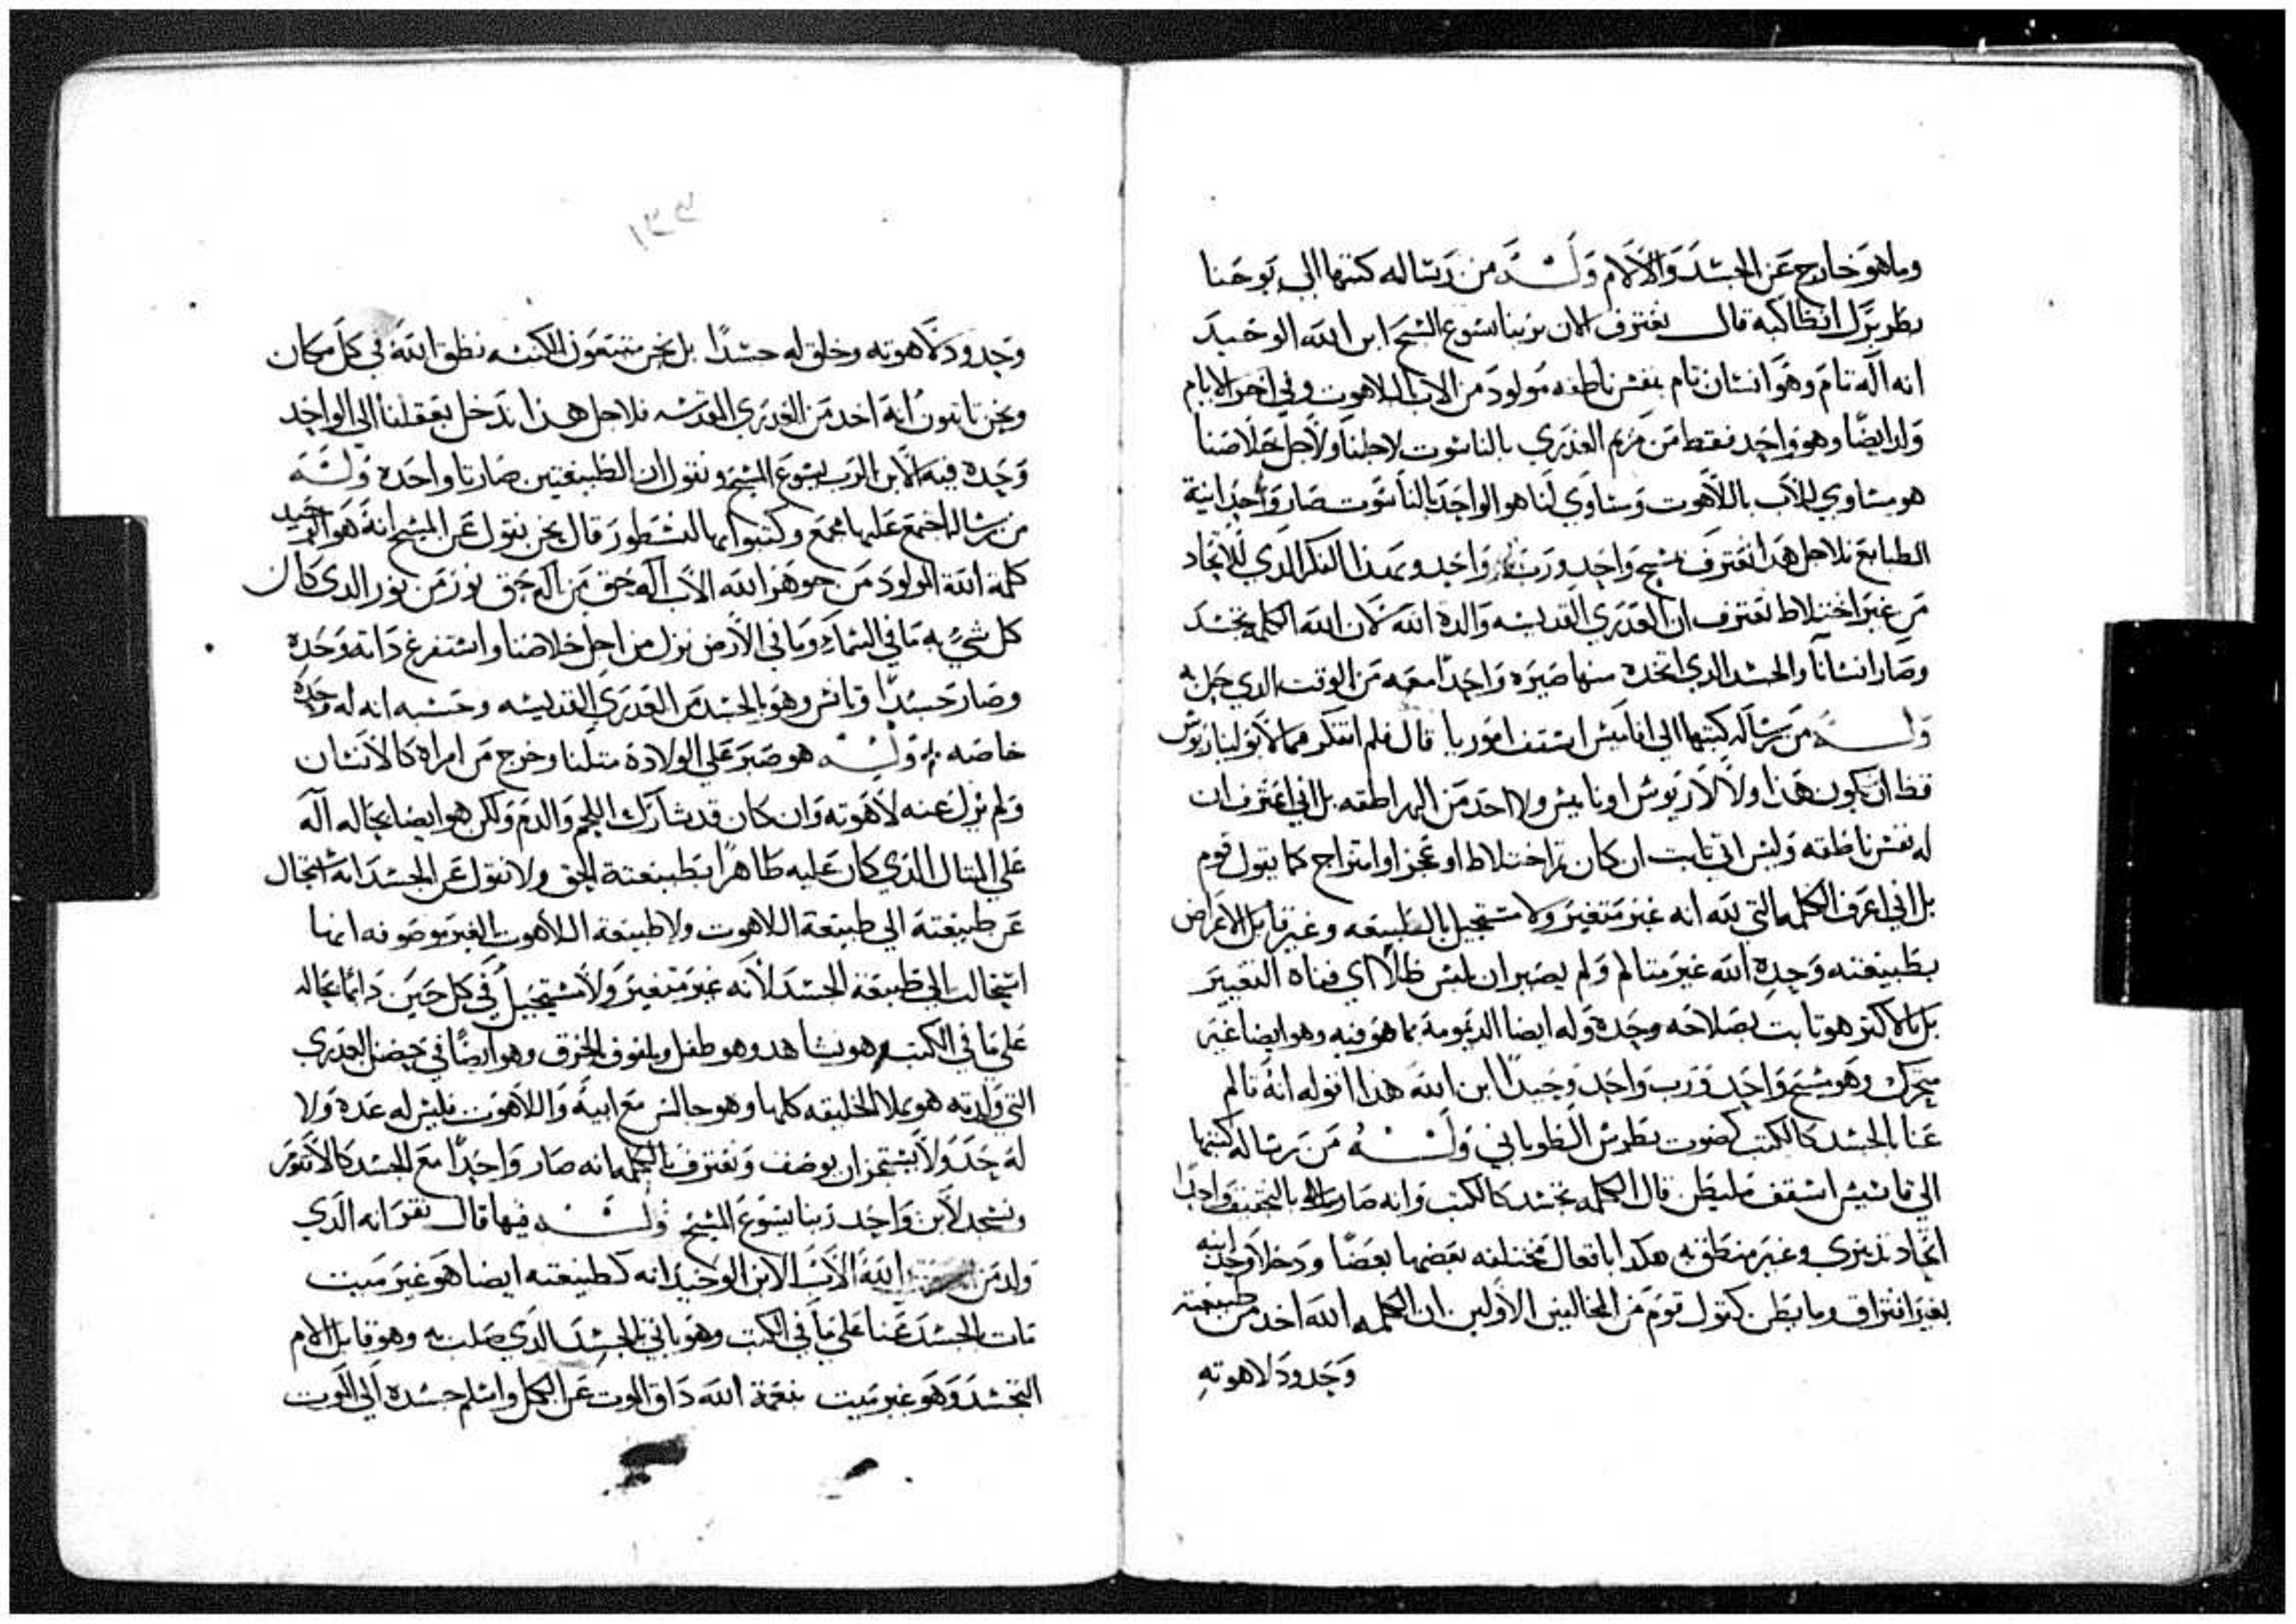 وماهو خارج عن الجسد والالام وله من رساله كتبها الى يوحنا
بطريرك انطاكيه قال نعترف الان بربنا يسوع المسيح ابن الله الوحيد
انه اله تام وهو انسان تام بنفس ناطقه مولود من الاب باللاهوت وفي اخر الايام
ولد ايضا وهو واحد فقط من مريم العذرى بالناسوت لاجلنا ولاجل خلاصنا
هو مساوي للاب باللاهوت ومساوي لنا هو الواحد بالناسوت صار وحدانية
الطبايع فلاجل هذا نعترف بمسيح واحد ورب واحد وبهذا الفكر الذي للاتحاد
من غير اختلاط نعترف ان العدرى القديسه والدة الله لان الله الكلمه تجسد
وصار انسانا والجسد الدي اتخده منها صيره واحدا معه من الوقت الدي حبل به
وله من رساله كتبها الى اقاقيس اسقف قال فلم افتكر
قط ان يكون هذا ولا لاريوس اونابيس ولا احد من الهراطقه بل اني اعترف ان
له نفس ناطقه وليس اني تابت ان كان تم اختلاط او عجز او امتزاج كما يقول قوم
بل اني اعرف الكلمه التي لله انه غير متغير ولا مستحيل بالطبيعه وغير قابل الاعراض
بطبيعته وحده الله غير متالم ولم يصبر ان يلبس ظلا اي فناه التغيير
بل بالاكتر هو تابت بصلاحه وحده وله ايضا الديمومة بما هو فيه وهو ايضا غير
متحرك وهو مسيح واحد ورب واحد وحيدا ابن الله هدا اقوله انه تالم
عنا بالجسد كالكتب كصوت بطرس الطوباني وله من رساله كتبها
الى اسقف قال الكلمه تجسد كالكتب وانه صار بالتحقيق واحدا
اتحاد تدبيري وغير منطق به هكدا بافعال مختلفه بعضها بعضا ودخلا وحدانيه
بغير افتراق وما يظن كقول قوم من المخالفين الاولين ان الكلمه الله اخد من طبيعته
وحدود لاهوته
وحدود لاهوته وخلق له جسدا بل نحن متبعون الكتب نطق الله في كل مكان
ونحن تابتون انه اخد من العدرى المقدسه فلاجل هدا ندخل بعقلنا الى الواحد
وحده فيه الابن الرب يسوع المسيح ونقول ان الطبيعتين صارتا واحده وله
من رساله اجتمع عليها مجمع وكتبوا بها لنسطور قال نحن نقول عن المسيح انه هو الوحيد
كلمة الله المولود من جوهر الله الاب اله حق من اله حق نور من نور الدي كان
كل شي به ما في السماء وما في الارض نزل من اجل خلاصنا واستفرغ داته وحده
وصار جسدا وتانس وهو بالجسد من العدرى القديسه وحسبه انه له وحده
خاصه وله هو صبر على الولادة متلنا وخرج من امراه كالانسان
ولم يزل عنه لاهوته وان كان قد شارك اللحم والدم ولكن هو ايضا بحاله اله
على المتال الدي كان عليه ظاهرا بطبيعتة الحق ولا نقول عن الجسد انه استحال
عن طبيعته الى طبيعة اللاهوت ولا طبيعة اللاهوت الغير موصوفه انها
استحالت الى طبيعة الجسد لانه غير متغير ولا مستحيل في كل حين دائما بحاله
على ما في الكتب هو نشاهد وهو طفل وملفوف بالخرق وهو ايضا في حضن العدرى
التي ولدته هو يملا الخليقه كلها وهو جالس مع ابيه واللاهوت فليس له عدة ولا
له حد ولا ان يوصف ونعترف بالكلمه انه صار واحدا مع الجسد كالاقنوم
ونسجد لابن واحد ربنا يسوع المسيح وله فيها قال نقر انه الدي
ولد من الله الاب الابن الوحيد انه كطبيعته ايضا هو غير ميت
مات بالجسد عنا على ما في الكتب وهو باني بالجسد الدي صلب به وهو قابل الالام
التجسد وهو غير ميت بنعمة الله داق الموت عن الكل واسلم جسده الى الموت